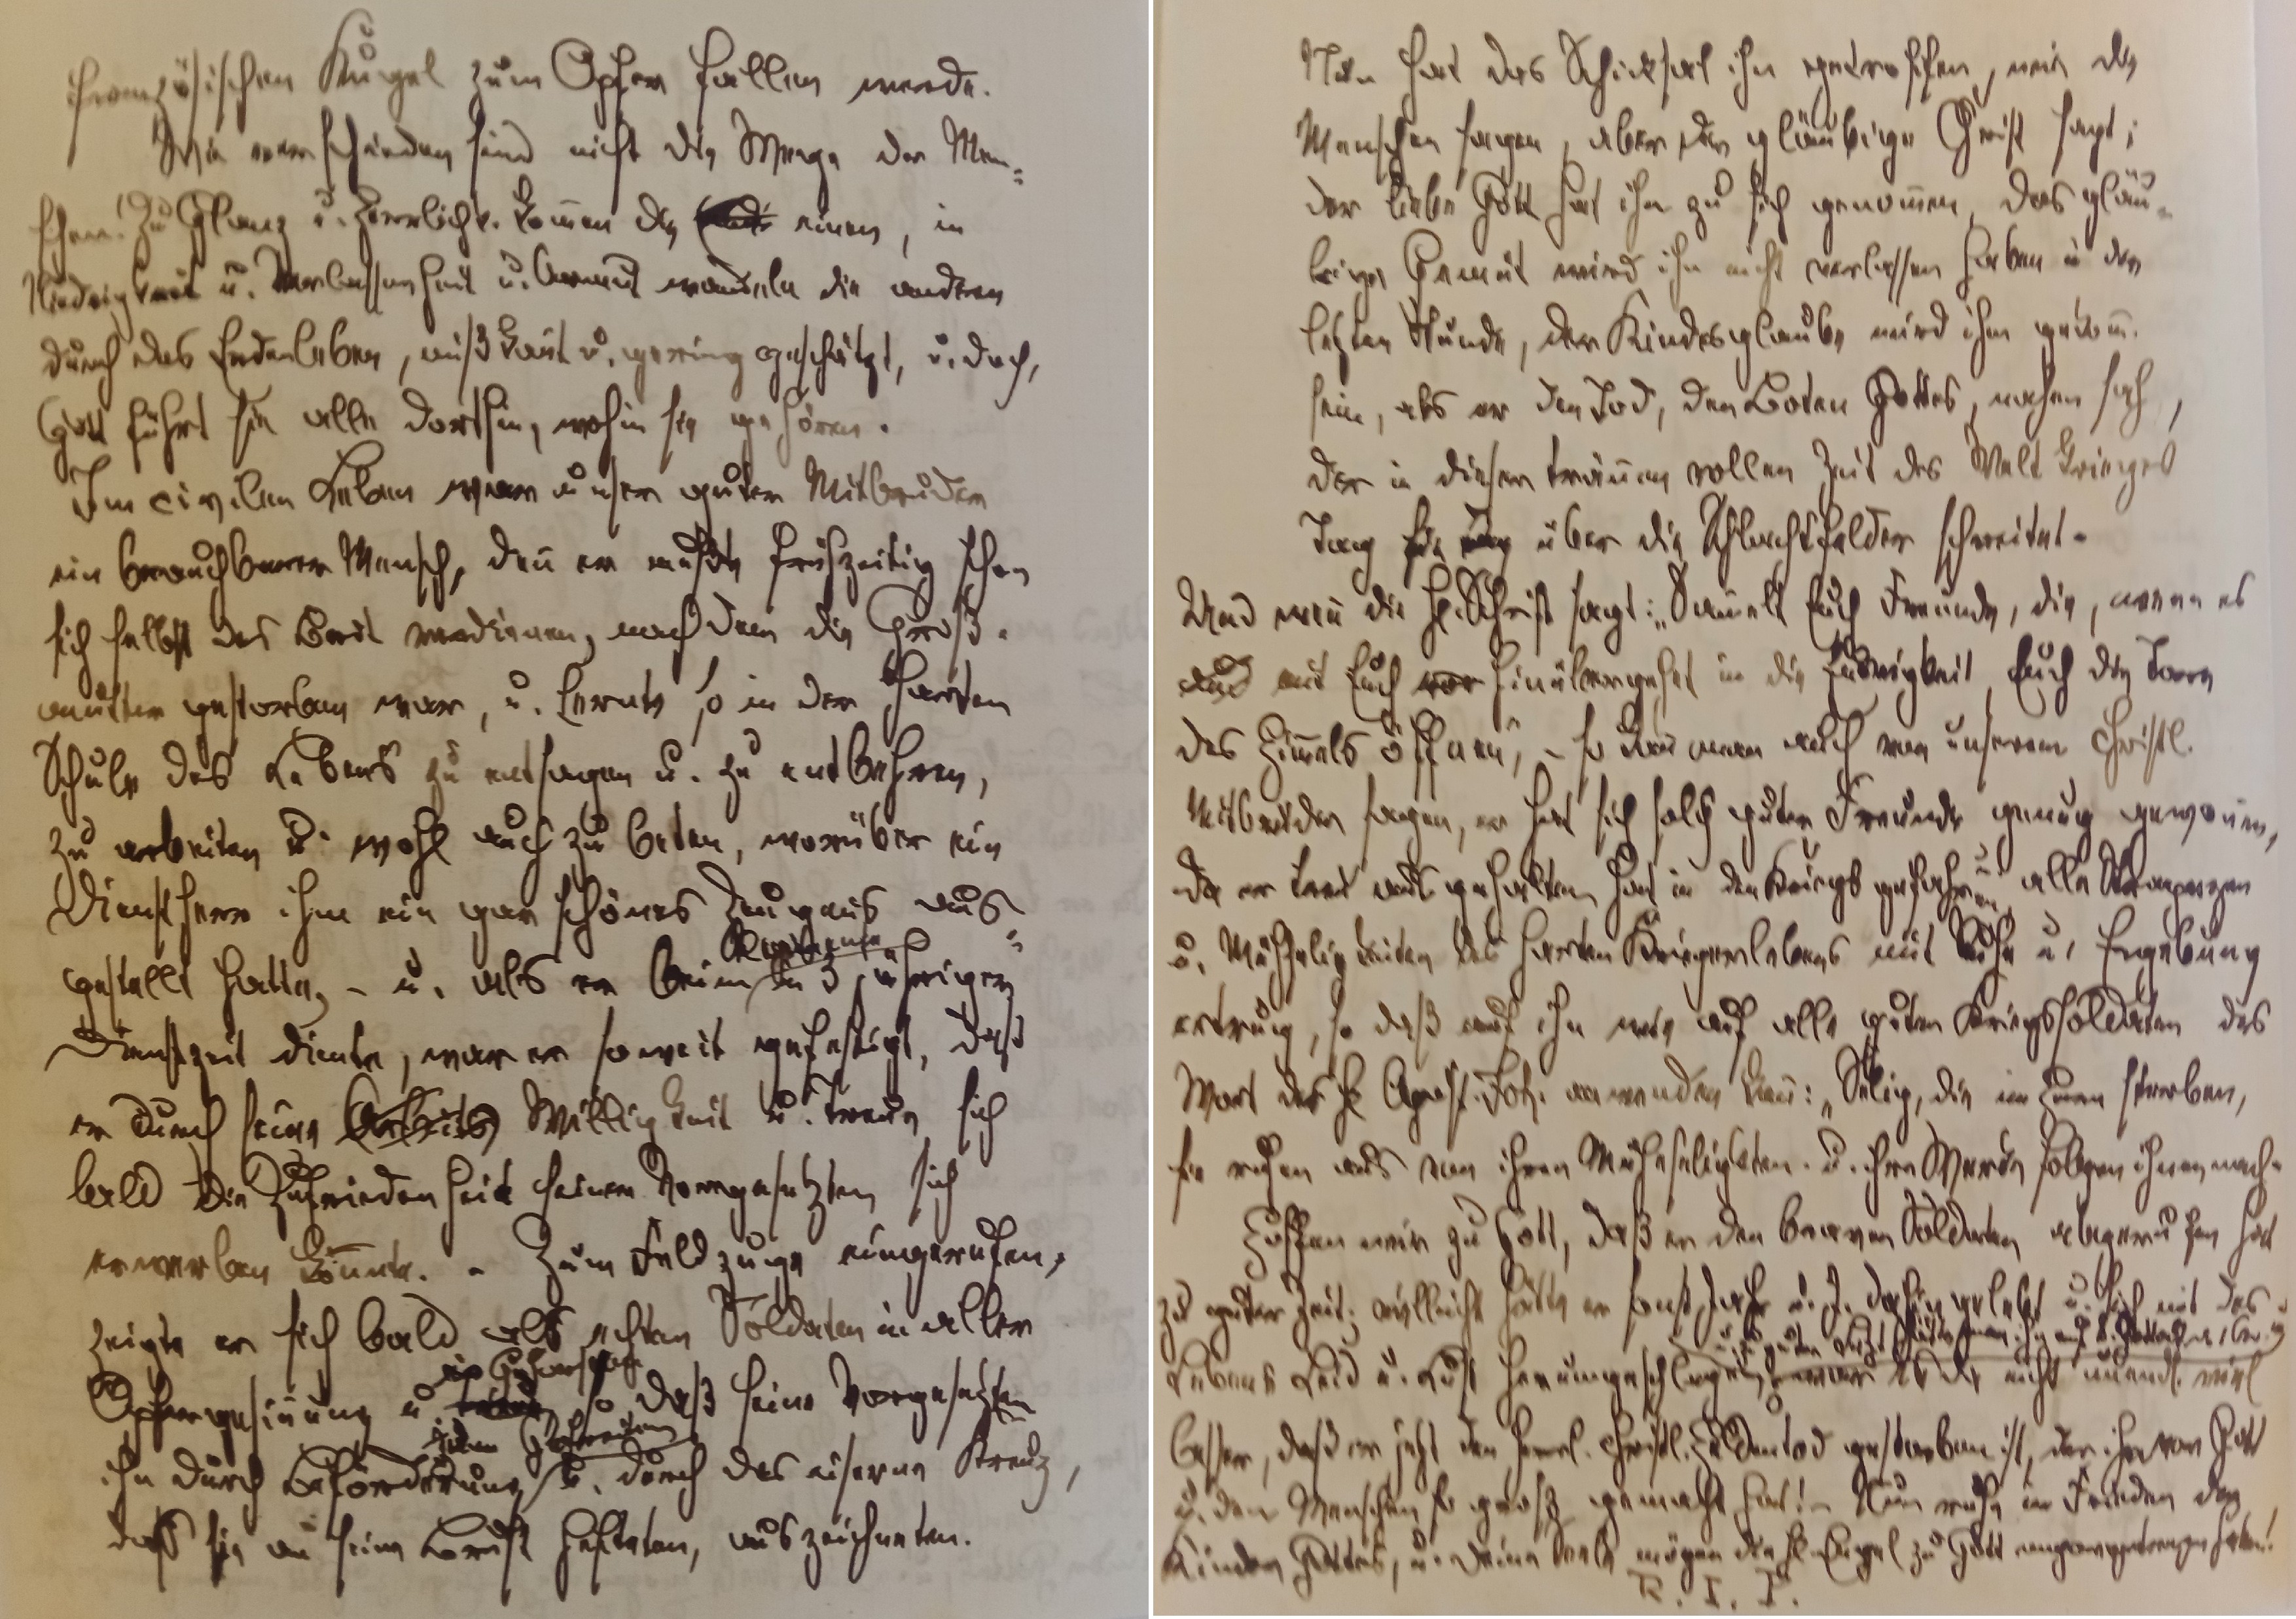 französischen Kugel zum Opfer fallen werde.
Wie verschieden sind nicht die Wege der Men=
schen! Zu Glanz u. Herrlichk. kom̅en die einen, in
Niedrigkeit u. Verlassenheit u. Armut wandeln die anderen
durch das Erdenleben, mißkant u. gering geschätzt, u. doch,
Gott führt sie alle dorthin, wohin sie gehören.
Im civilen Leben war unser guter Mitbruder
ein brauchbarer Mensch, den̅ er mußte frühzeitig schon
sich selbst das Brot verdienen, nachdem die Groß=
mutter gestorben war, u. lernte so in der harten
Schule des Lebens zu entsagen u. zu entbehren,
zu arbeiten u. wohl auch zu beten, worüber ein
Dienstherr ihm ein gar schönes Zeugnis aus=
gestellt hatte, – u. als er beim in 3 jähriger
Dienstzeit diente, war er soweit gefestigt, daß
er durch seine Arbeits Willigkeit u. Treue sich
bald die Zufriedenheit seiner Vorgesetzten sich
erwerben kon̅nte. – Zum Feldzuge eingerufen,
zeigte er sich bald als echten Soldaten in aller
Opfergesin̅ung u. im Gehorsam so daß seine Vorgesetzten
zum Gefreiten
ihn durch Beförderung u. durch das eiserne Kreuz,
das sie an seine Brust hefteten, auszeichneten.
Nun hat das Schicksal ihn getroffen, wie die
Menschen sagen, aber der gläubige Christ sagt:
der liebe Gott hat ihn zu sich genom̅en, das gläu=
bige Gemüt wird ihn nicht verlassen haben in der
letzten Stunde, der Kindesglaube wird ihm gekom̅.
sein, als er den Tod, den Boten Gottes, nahen sah,
der in dieser tränenvollen Zeit des Weltkrieges
Tag für Tag über die Schlachtfelder schreitet.
Und wen̅ die hl. Schrift sagt: „Sam̅elt Euch Freunde, die, wenn es
mit Euch hinübergehet in die Ewigkeit, Euch die Tore
des Him̅els öffnen", – so kan̅ man auch von unserem christl.
Mitbruder sagen, er hat sich solch guter Freunde genug gewon̅en,
da er treu ausgehalten hat in den Kriegsgefahren u. alle Strapazen
u. Mühseligkeiten des harten Kriegerlebens mit Ruhe u. Ergebung
ertrug, so daß auf ihn wie auf alle guten Kriegssoldaten das
Wort des hl. Apost. Joh. anwenden kan̅: „Selig, die im Herrn sterben,
sie ruhen aus von ihren Mühseligkten. u. ihre Werke folgen ihnen nach.
Hoffen wir zu Gott, daß er den braven Soldaten abgerufen hat
zu guter Zeit; vielleicht hätte er sonst Jahr u. J. dahin gelebt u. sich mit des
Lebens Leid u. Lust herumgeschlagen, war es da nicht unendl. viel
besser, daß er jetzt den herrl. christl. Heldentod gestorben ist, der ihn vor Gott
u. den Menschen so groß gemacht hat! – Nun ruhe in Frieden der
Kinder Gottes, u. deine Seele mögen die hl. Engel zu Gott emporgetragen haben!
R. I. P.